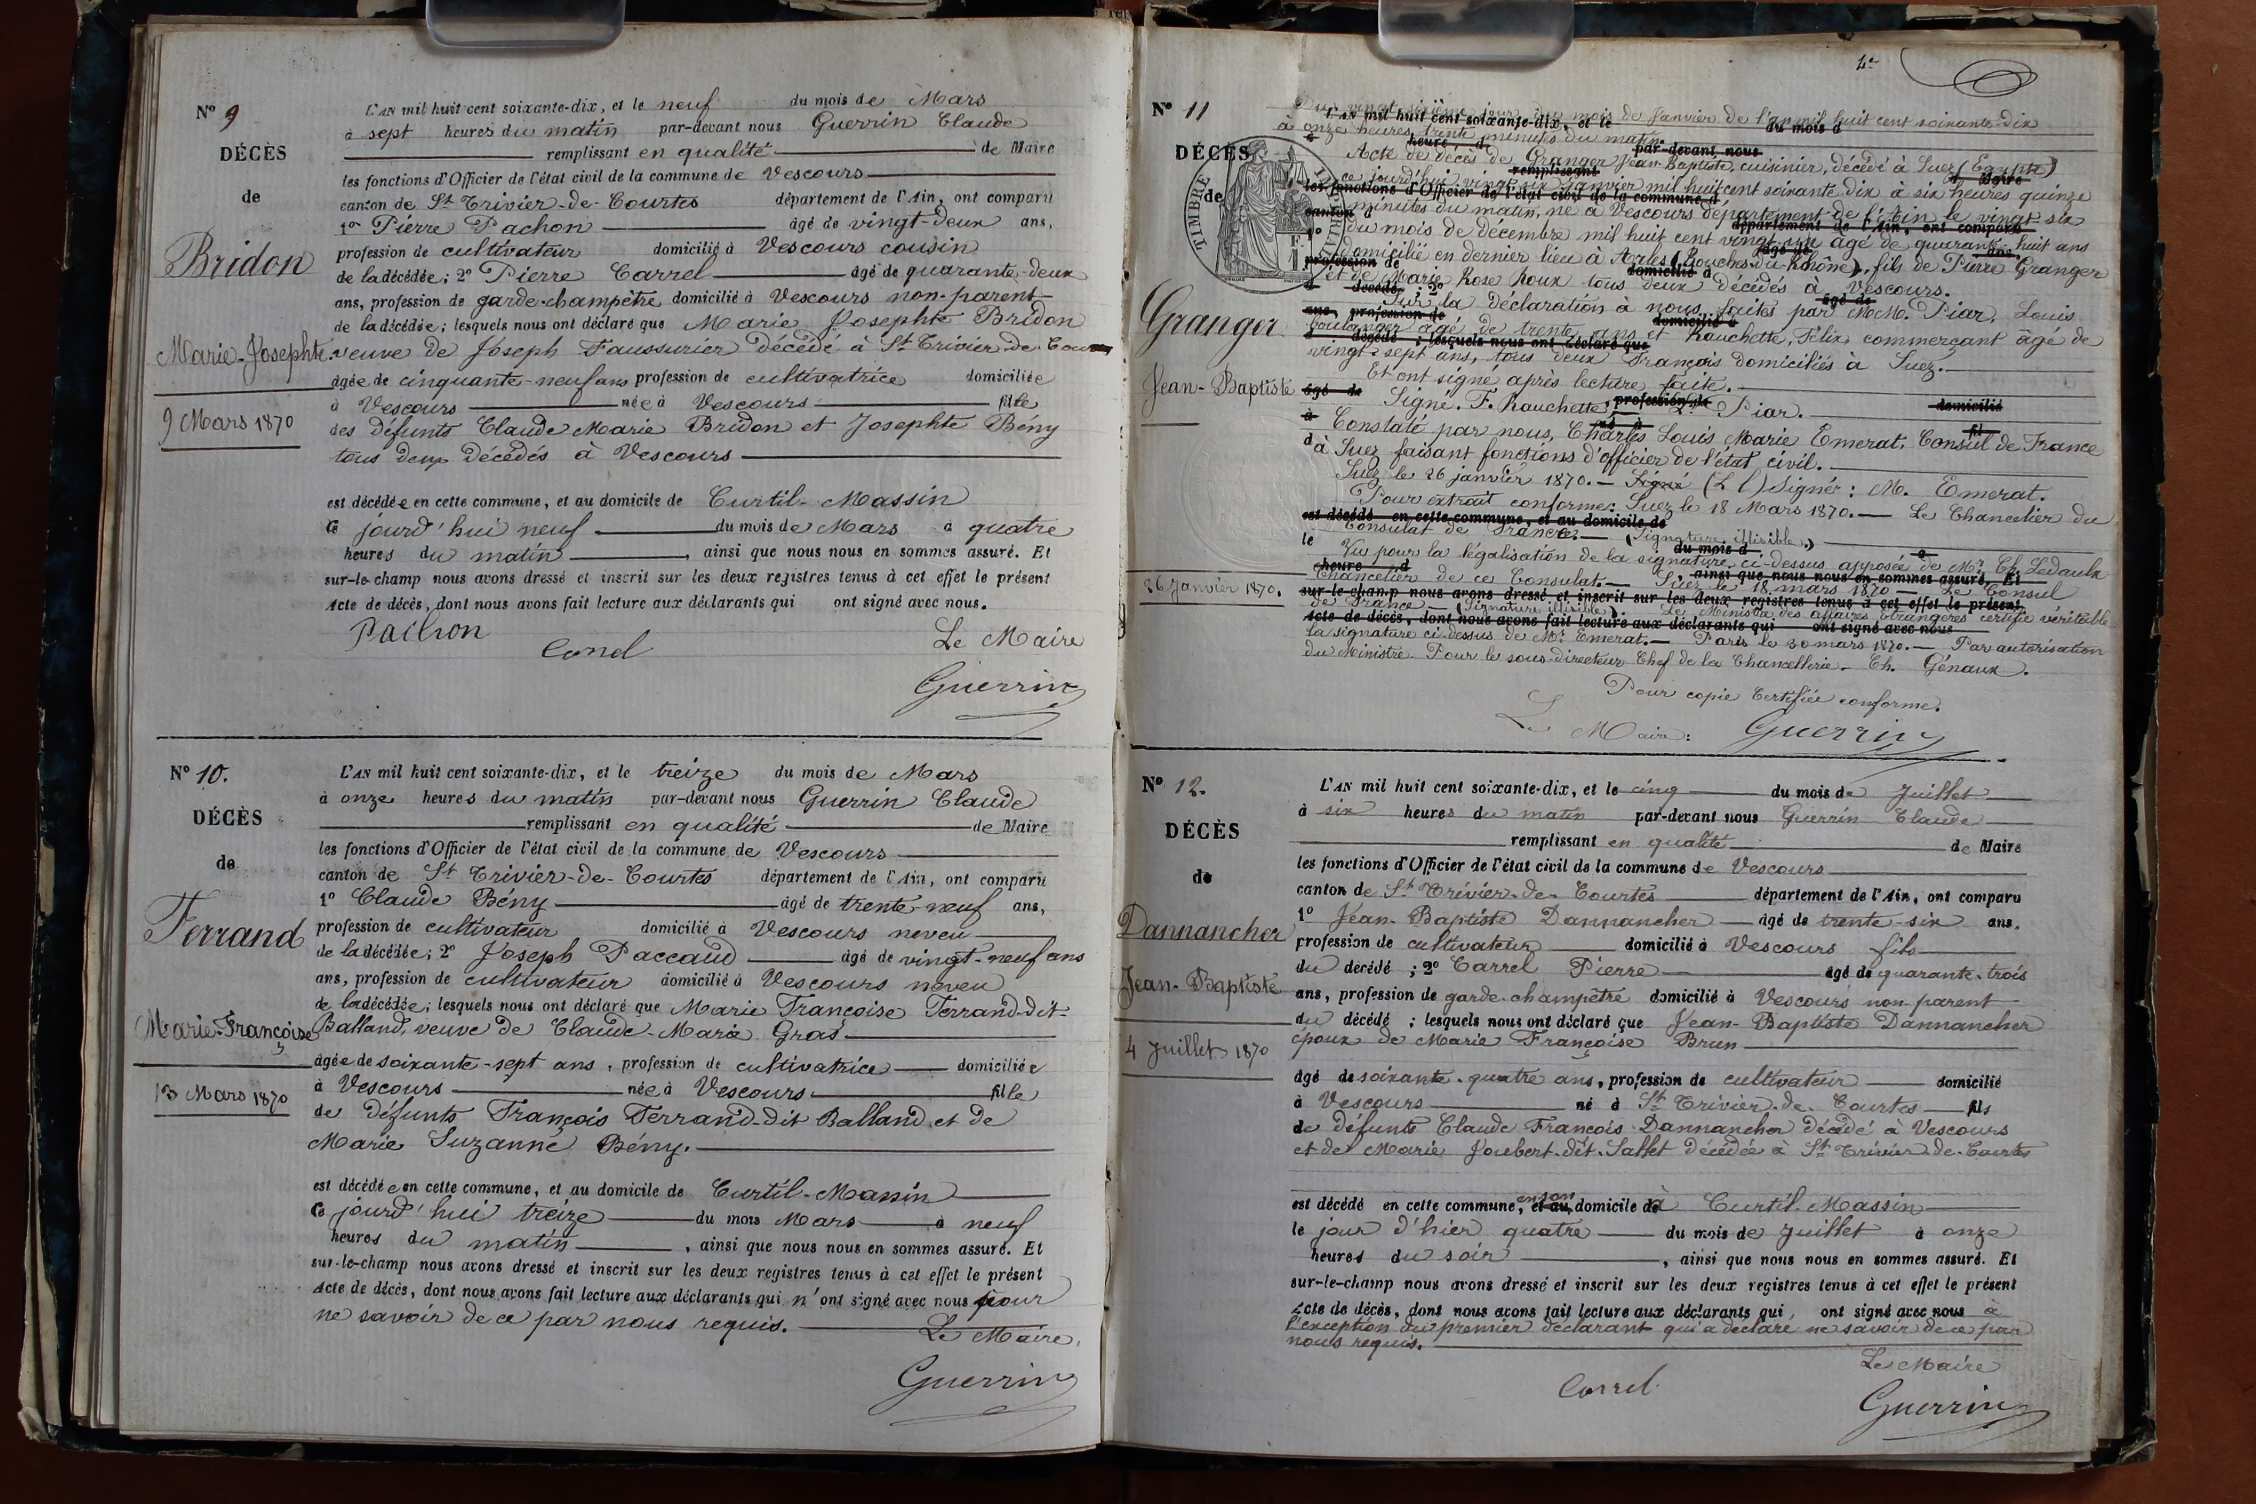 Nº 9
DÉCÈS
de
Bridon
Marie-Josephte
9 Mars 1870
L'AN mil huit cent soixante-dix, et le neuf du mois de Mars
à sept heures du matin par-devant nous Guerrin Claude
remplissant en qualité de Maire
les fonctions d'Officier de l'état civil de la commune de Vescours
canton de St Trivier-de-Courtes département de l'Ain, ont comparu
1º Pierre Pachon âgé de vingt-deux ans,
profession de cultivateur domicilié à Vescours cousin
de la décédée; 2º Pierre Carrel âgé de quarante-deux
ans, profession de garde-champêtre domicilié à Vescours non-parent
de la décédée; lesquels nous ont déclaré que Marie Josephte Bridon
veuve de Joseph Faussurier décédé à St Trivier-de-Courtes
âgée de cinquante-neuf ans profession de cultivatrice domiciliée
à Vescours née à Vescours fille
des défunts Claude Marie Bridon et Josephte Bény
tous deux décédés à Vescours
est décédée en cette commune, et au domicile de Curtil-Massin
Ce jourd'hui neuf du mois de Mars à quatre
heures du matin, ainsi que nous nous en sommes assuré. Et
sur-le-champ nous avons dressé et inscrit sur les deux registres tenus à cet effet le présent
Acte de décès, dont nous avons fait lecture aux déclarants qui ont signé avec nous.
Pachon
Carrel
Le Maire
Guerrin
Nº 10.
DÉCÈS
de
Ferrand
Marie-Françoise
13 Mars 1870
L'AN mil huit cent soixante-dix, et le treize du mois de Mars
à onze heures du matin par-devant nous Guerrin Claude
remplissant en qualité de Maire
les fonctions d'Officier de l'état civil de la commune de Vescours
canton de St Trivier-de-Courtes département de l'Ain, ont comparu
1º Claude Bény âgé de trente-neuf ans,
profession de cultivateur domicilié à Vescours neveu
de la décédée; 2º Joseph Paccaud âgé de vingt-neuf ans
ans, profession de cultivateur domicilié à Vescours neveu
de la décédée; lesquels nous ont déclaré que Marie Françoise Ferrand-dit-
Balland, veuve de Claude-Marie Gras
âgée de soixante-sept ans, profession de cultivatrice domiciliée
à Vescours née à Vescours fille
de défunts François Ferrand-dit Balland et de
Marie Suzanne Bény.
est décédée en cette commune, et au domicile de Curtil-Massin
Ce jourd'hui treize du mois Mars à neuf
heures du matin, ainsi que nous nous en sommes assuré. Et
sur-le-champ nous avons dressé et inscrit sur les deux registres tenus à cet effet le présent
Acte de décès, dont nous avons fait lecture aux déclarants qui n'ont signé avec nous pour
ne savoir de ce par nous requis.
Le Maire,
Guerrin
4e
Nº 11
DÉCÈS
de
TIMBRE IMPÉRIAL
Granger
Jean-Baptiste
26 Janvier 1870.
Du vingt-sixième jour du mois de Janvier de l'an mil huit cent soixante-dix
à onze heures trente minutes du matin.
Acte de décès de Granger Jean-Baptiste, cuisinier, décédé à Suez (Egypte)
ce jourd'hui vingt-six Janvier mil huit cent soixante dix à six heures quinze
minutes du matin, né à Vescours département de l'Ain le vingt-six
du mois de décembre mil huit cent vingt-un âgé de quarante-huit ans
domicilié en dernier lieu à Arles (Bouches-du-Rhône), fils de Pierre Granger
et de Marie Rose Roux tous deux décédés à Vescours.
Sur la déclaration à nous faite par MM. Piar, Louis
boulanger âgé de trente ans et Rauchette, Félix commerçant âgé de
vingt-sept ans, tous deux Français domiciliés à Suez.
Et ont signé après lecture faite.
Signé. F. Rauchette, L. Piar.
Constaté par nous, Charles Louis Marie Emerat, Consul de France
à Suez faisant fonctions d'officier de l'état civil.
Suez le 26 janvier 1870. — Signé (L l) Signé: M. Emerat.
Pour extrait conforme: Suez le 18 Mars 1870. — Le Chancelier du
Consulat de France. — (Signature illisible.)
Vu pour la légalisation de la signature ci-dessus apposée de Mr Ch. Ledoulx
Chancelier de ce Consulat. — Suez le 18 mars 1870 — Le Consul
de France — (Signature illisible). Le Ministre des affaires Etrangères certifie véritable
la signature ci-dessus de Mr Emerat. — Paris le 30 mars 1870. — Par autorisation
du Ministre. Pour le sous-directeur Chef de la Chancellerie — Ch. Génaux.
Pour copie Certifiée conforme.
Le Maire: Guerrin
Nº 12.
DÉCÈS
de
Dannancher
Jean-Baptiste
4 Juillet 1870
L'AN mil huit cent soixante-dix, et le cinq du mois de Juillet
à six heures du matin par-devant nous Guerrin Claude
remplissant en qualité de Maire
les fonctions d'Officier de l'état civil de la commune de Vescours
canton de St Trévier-de-Courtes département de l'Ain, ont comparu
1º Jean-Baptiste Dannancher âgé de trente-six ans,
profession de cultivateur domicilié à Vescours fils
du décédé; 2º Carrel Pierre âgé de quarante-trois
ans, profession de garde-champêtre domicilié à Vescours non-parent
du décédé; lesquels nous ont déclaré que Jean-Baptiste Dannancher
époux de Marie Françoise Brun
âgé de soixante-quatre ans, profession de cultivateur domicilié
à Vescours né à St Trivier-de-Courtes fils
de défunts Claude François Dannancher décédé à Vescours
et de Marie Joubert-dit-Sallet décédée à St Trivier-de-Courtes
est décédé en cette commune, en son et au domicile de à Curtil-Massin
le jour d'hier quatre du mois de Juillet à onze
heures du soir, ainsi que nous nous en sommes assuré. Et
sur-le-champ nous avons dressé et inscrit sur les deux registres tenus à cet effet le présent
Acte de décès, dont nous avons fait lecture aux déclarants qui ont signé avec nous à
l'exception du premier déclarant qui a déclaré ne savoir de ce par
nous requis.
Le Maire
Carrel
Guerrin